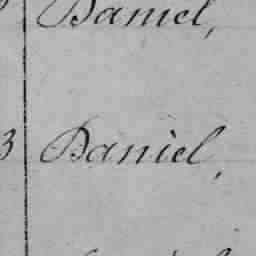 Daniel,
3 Daniel,